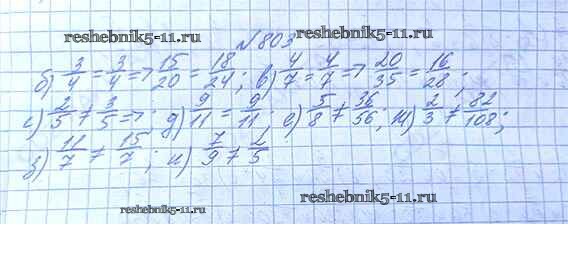 reshebnik5-11.ru
№ 803
reshebnik5-11.ru
б) 3/4 = 3/4 => 15/20 = 18/24; в) 4/7 = 4/7 => 20/35 = 16/28;
с) 2/5 ≠ 3/5 =>; д) 9/11 = 9/11; е) 5/8 ≠ 36/56; ж) 2/3 ≠ 82/108;
з) 11/7 ≠ 15/7; и) 7/9 ≠ 2/5
reshebnik5-11.ru
reshebnik5-11.ru